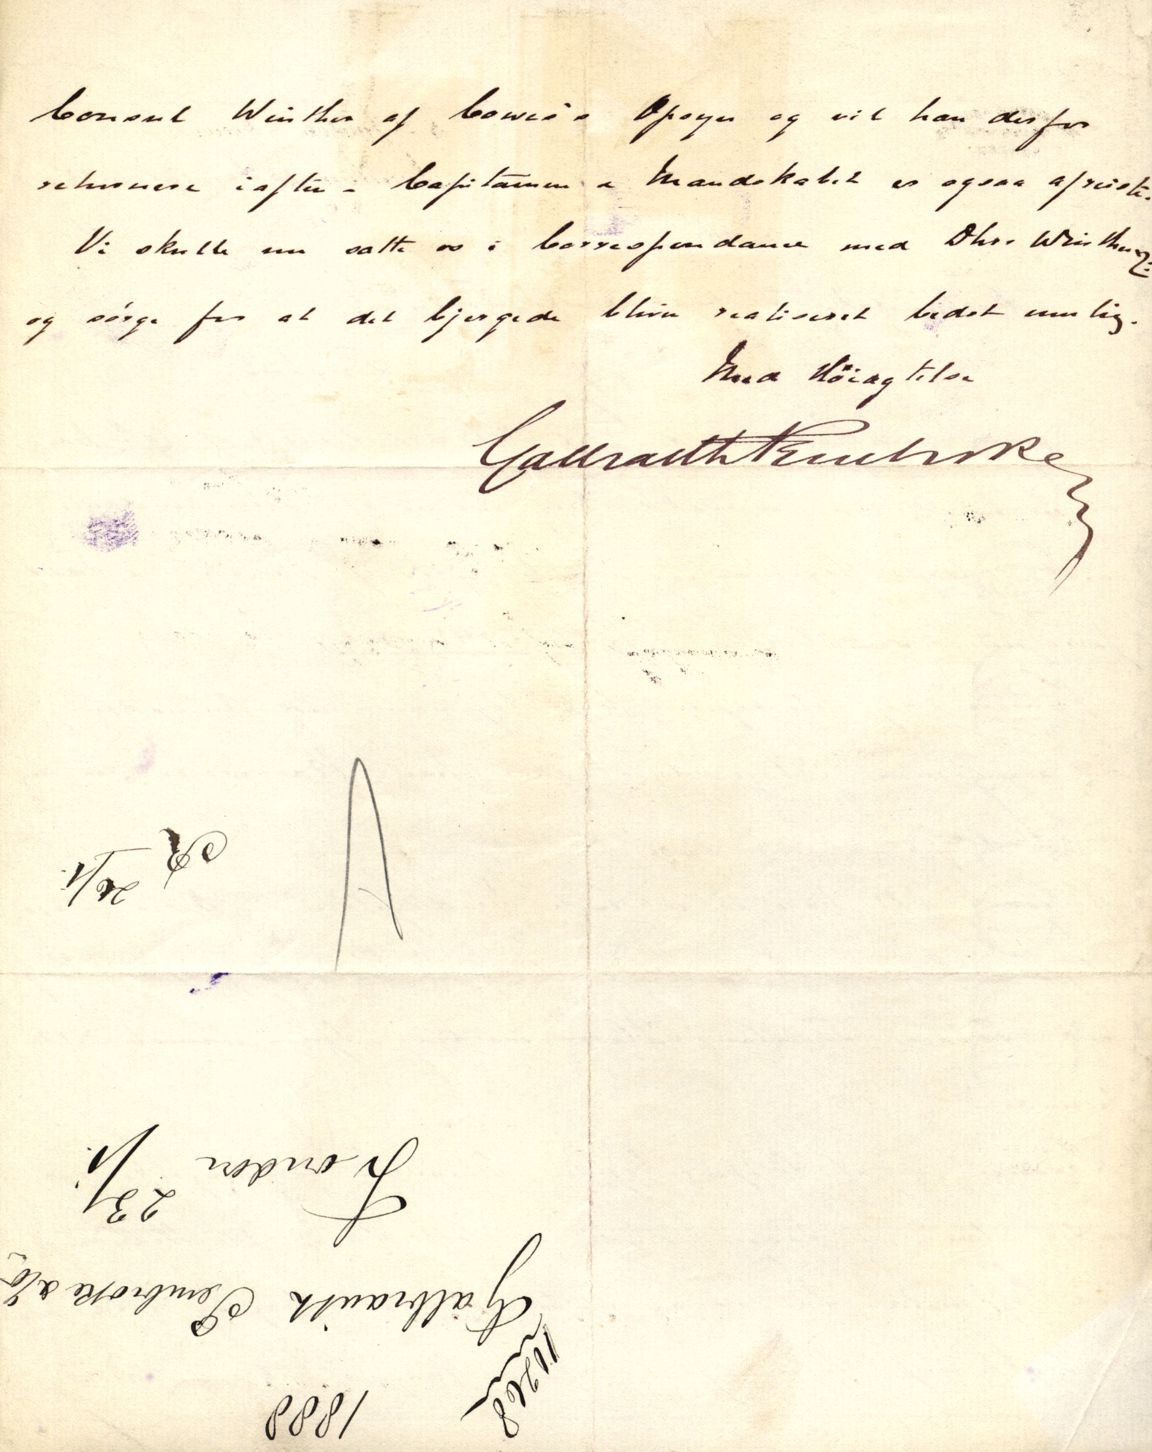 Consul Winther af Cowes's Opsyn og vil han derfor
returnere iaften - Capitainen & Mandskabet er ogsaa afreiste.
Vi skulle nu sætte os i Correspondance med Dhrr. Winther
og sörge for at det bjergede bliver realiseret bedst mulig.
Med Höiagtelse
Galbraith Pembroke
A
26/1.
1888
11268
Galbraith Pembroke & Co
London 23/1.